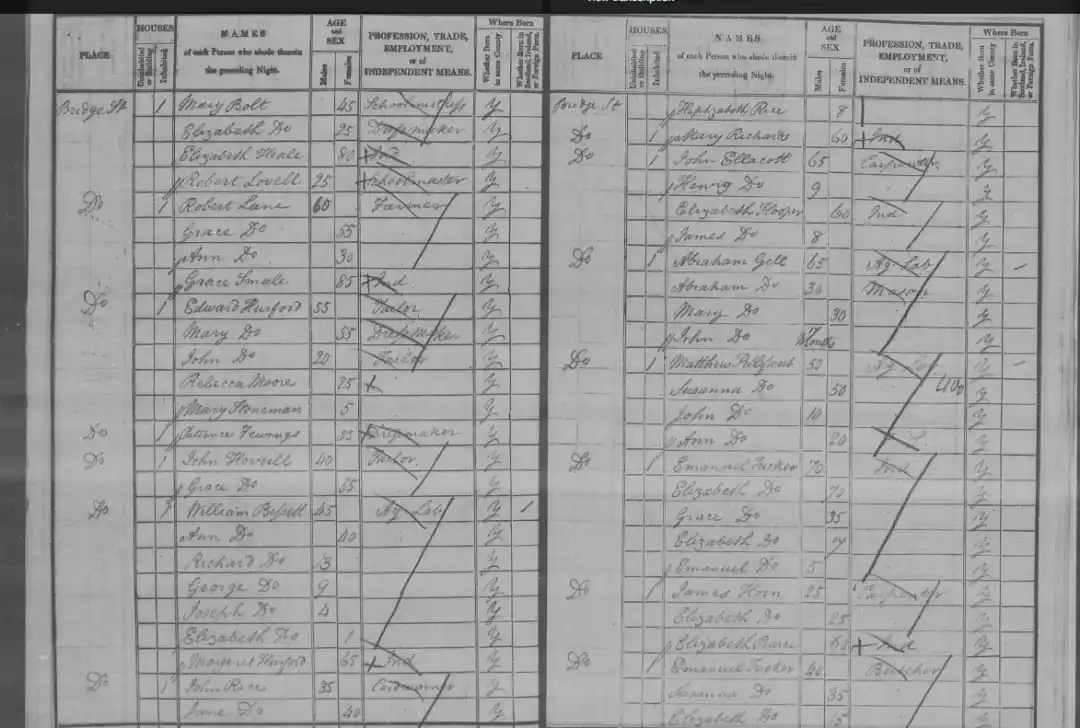 PLACE HOUSES Uninhabited or Building Inhabited NAMES of each Person who abode therein the preceding Night. AGE and SEX Males Females PROFESSION, TRADE, EMPLOYMENT, or of INDEPENDENT MEANS. Where Born Whether Born in same County Whether Born in Scotland, Ireland, or Foreign Parts.
Bridge St 1 Mary Bolt 45 Schoolmistress Y
Elizabeth Do 25 Dressmaker Y
Elizabeth Heale 80 Ind Y
Robert Lovell 25 Schoolmaster Y
Do 1 Robert Lane 60 Farmer Y
Grace Do 55 Y
Ann Do 30 Y
Grace Smale 85 Ind Y
Do 1 Edward Hurford 55 Tailor Y
Mary Do 55 Dressmaker Y
John Do 20 Tailor Y
Rebecca Moore 25 Y
Mary Stoneman 5 Y
Do 1 35 Dressmaker Y
Do 1 John 40 Tailor Y
Grace Do 55 Y
Do 1 William Bissett 45 Ag Lab Y
Ann Do 40 Y
Richard Do 13 Y
George Do 9 Y
Joseph Do 4 Y
Elizabeth Do 1 Y
Margaret Hurford 65 Ind Y
Do 1 John Rice 35 Cordwainer Y
Jane Do 40 Y
PLACE HOUSES Uninhabited or Building Inhabited NAMES of each Person who abode therein the preceding Night. AGE and SEX Males Females PROFESSION, TRADE, EMPLOYMENT, or of INDEPENDENT MEANS. Where Born Whether Born in same County Whether Born in Scotland, Ireland, or Foreign Parts.
Bridge St Hephzabeth Rice 8 Y
Do 1 Mary Richards 60 Ind Y
Do 1 John Ellacott 65 Carpenter Y
Henry Do 9 Y
Elizabeth Hooper 60 Ind Y
James Do 8 Y
Do 1 Abraham Gell 65 Ag Lab Y
Abraham Do 30 Mason Y
Mary Do 30 Y
John Do Months Y
Do 1 Matthew 50 Ag Lab Y
Susanna Do 50 Y
John Do Y
Ann Do 20 Y
Do 1 Emanuel Tucker 70 Ind Y
Elizabeth Do 70 Y
Grace Do 35 Y
Elizabeth Do 7 Y
Emanuel Do 5 Y
Do 1 James Horn 25 Carpenter Y
Elizabeth Do 25 Y
Elizabeth 60 Ind Y
Do 1 Emanuel Tucker 40 Butcher Y
Susanna Do 35 Y
Elizabeth Do 15 Y